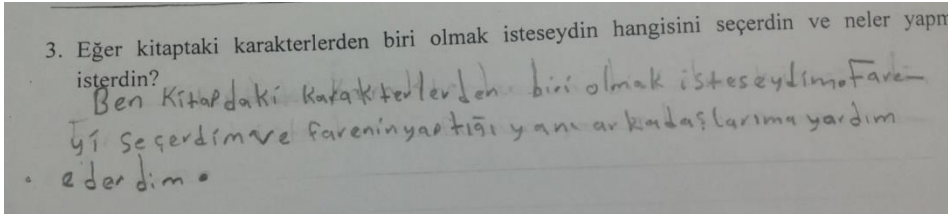 3. Eğer kitaptaki karakterlerden biri olmak isteseydin hangisini seçerdin ve neler yapm
isterdin?
Ben Kitapdaki Karakterlerden biri olmak isteseydim. Fare-
yi seçerdim ve fareninyaptığı yanı arkadaşlarıma yardım
ederdim.